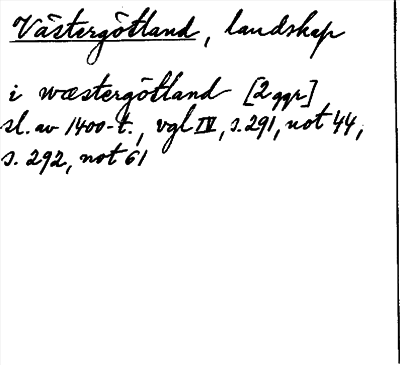 Västergötland, landskap
i wæstergötland [2 ggr]
sl. av 1400-t., vgl IV, s. 291, not 44,
s. 292, not 61